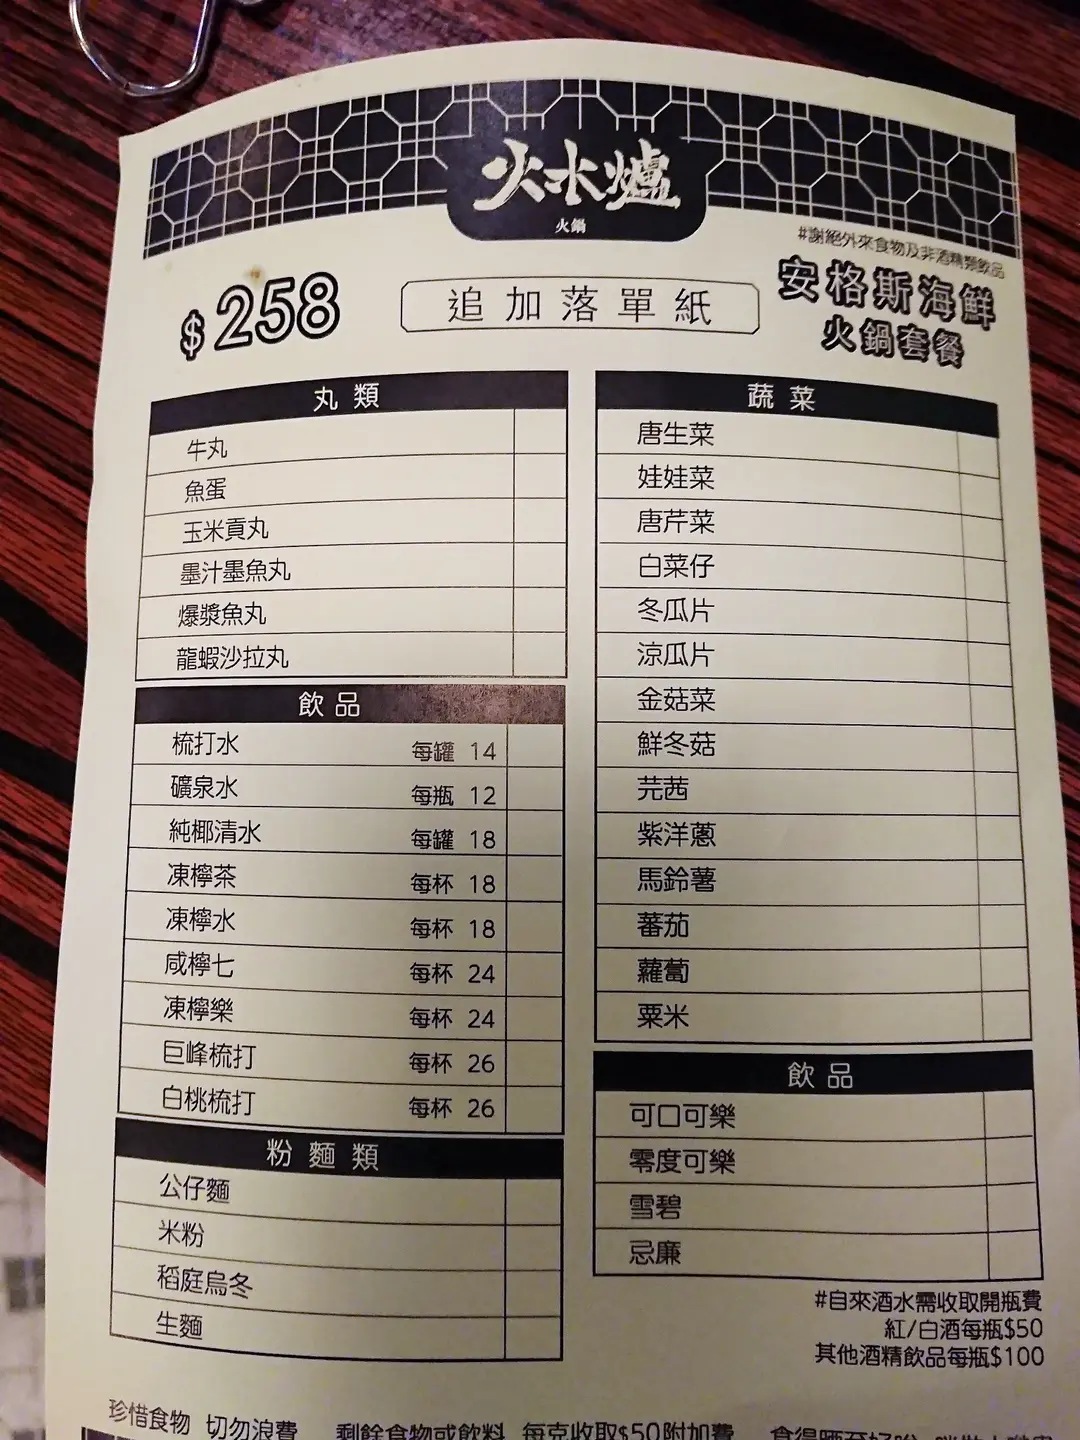 火水爐
火鍋
#謝絕外來食物及非酒精類飲品
$258
追加落單紙
安格斯海鮮
火鍋套餐
丸類
牛丸
魚蛋
玉米貢丸
墨汁墨魚丸
爆漿魚丸
龍蝦沙拉丸
飲品
梳打水 每罐 14
礦泉水 每瓶 12
純椰清水 每罐 18
凍檸茶 每杯 18
凍檸水 每杯 18
咸檸七 每杯 24
凍檸樂 每杯 24
巨峰梳打 每杯 26
白桃梳打 每杯 26
粉麵類
公仔麵
米粉
稻庭烏冬
生麵
蔬菜
唐生菜
娃娃菜
唐芹菜
白菜仔
冬瓜片
涼瓜片
金菇菜
鮮冬菇
芫茜
紫洋蔥
馬鈴薯
蕃茄
蘿蔔
粟米
飲品
可口可樂
零度可樂
雪碧
忌廉
#自來酒水需收取開瓶費
紅/白酒每瓶$50
其他酒精飲品每瓶$100
珍惜食物 切勿浪費 剩餘食物或飲料 每克收取$50附加費